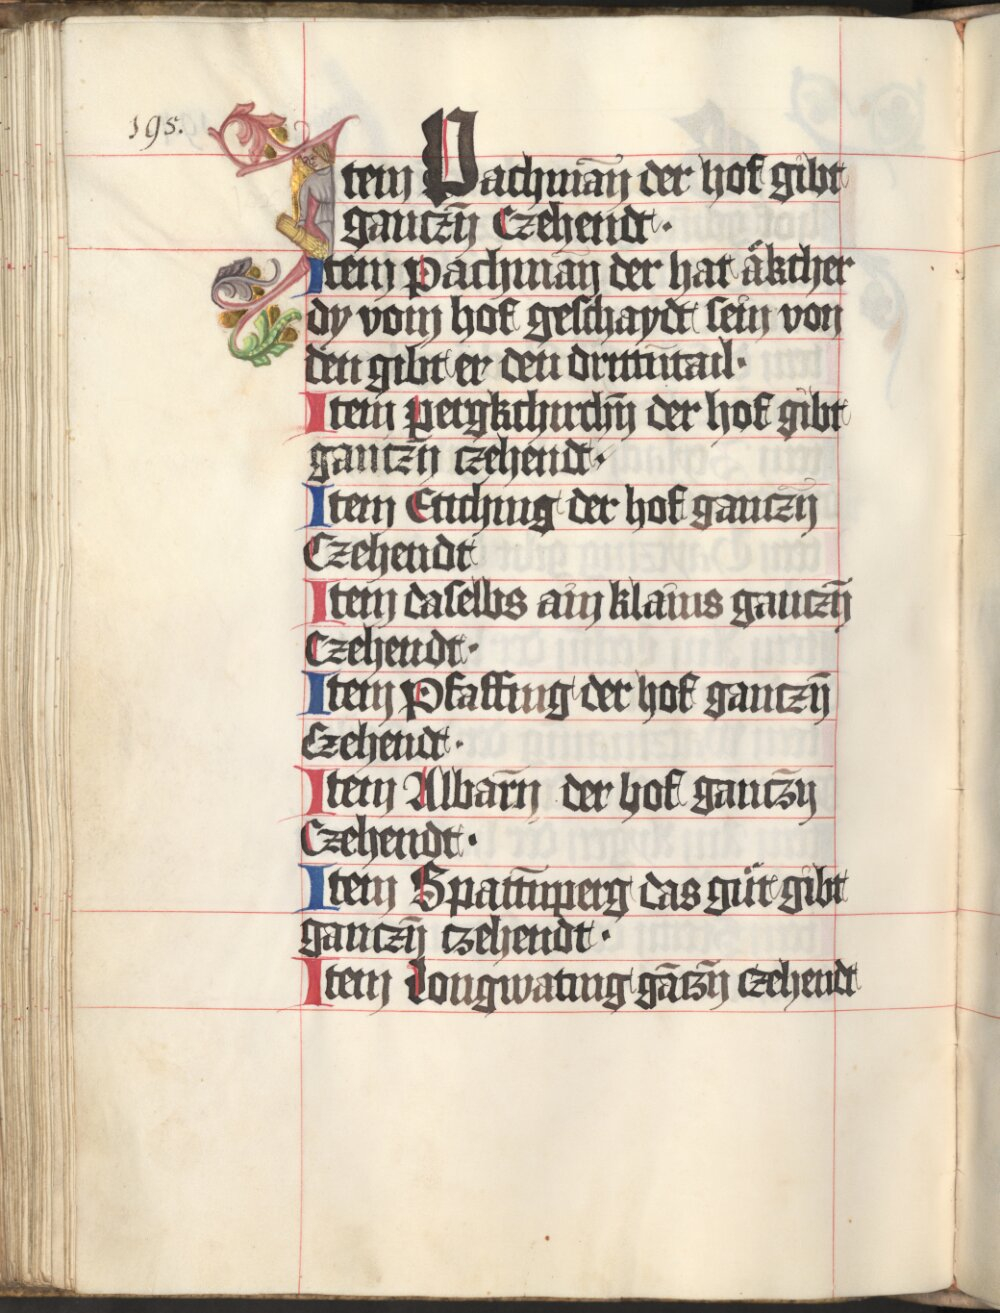 195.
Item Pachmān der hof gibt
gancz̄n Czehendt·
Item Pachmāñ der hat äkcher
dy vom hof geschaydt sein von
den gibt er den drittn̄tail·
Item Pergkchirchn̄ der hof gibt
gancz̄n czehendt·
Item Etiching der hof ganczn̄
Czehendt
Item daselbs ain klains ganczn̄
Czehendt·
Item Pfaffing der hof ganczn̄
Czehendt·
Item Albarn̄ der hof gancz̄n
Czehendt·
Item Spattn̄perg das güt gibt
gancz̄n czehendt·
Item Longwating gāczn̄ czehendt